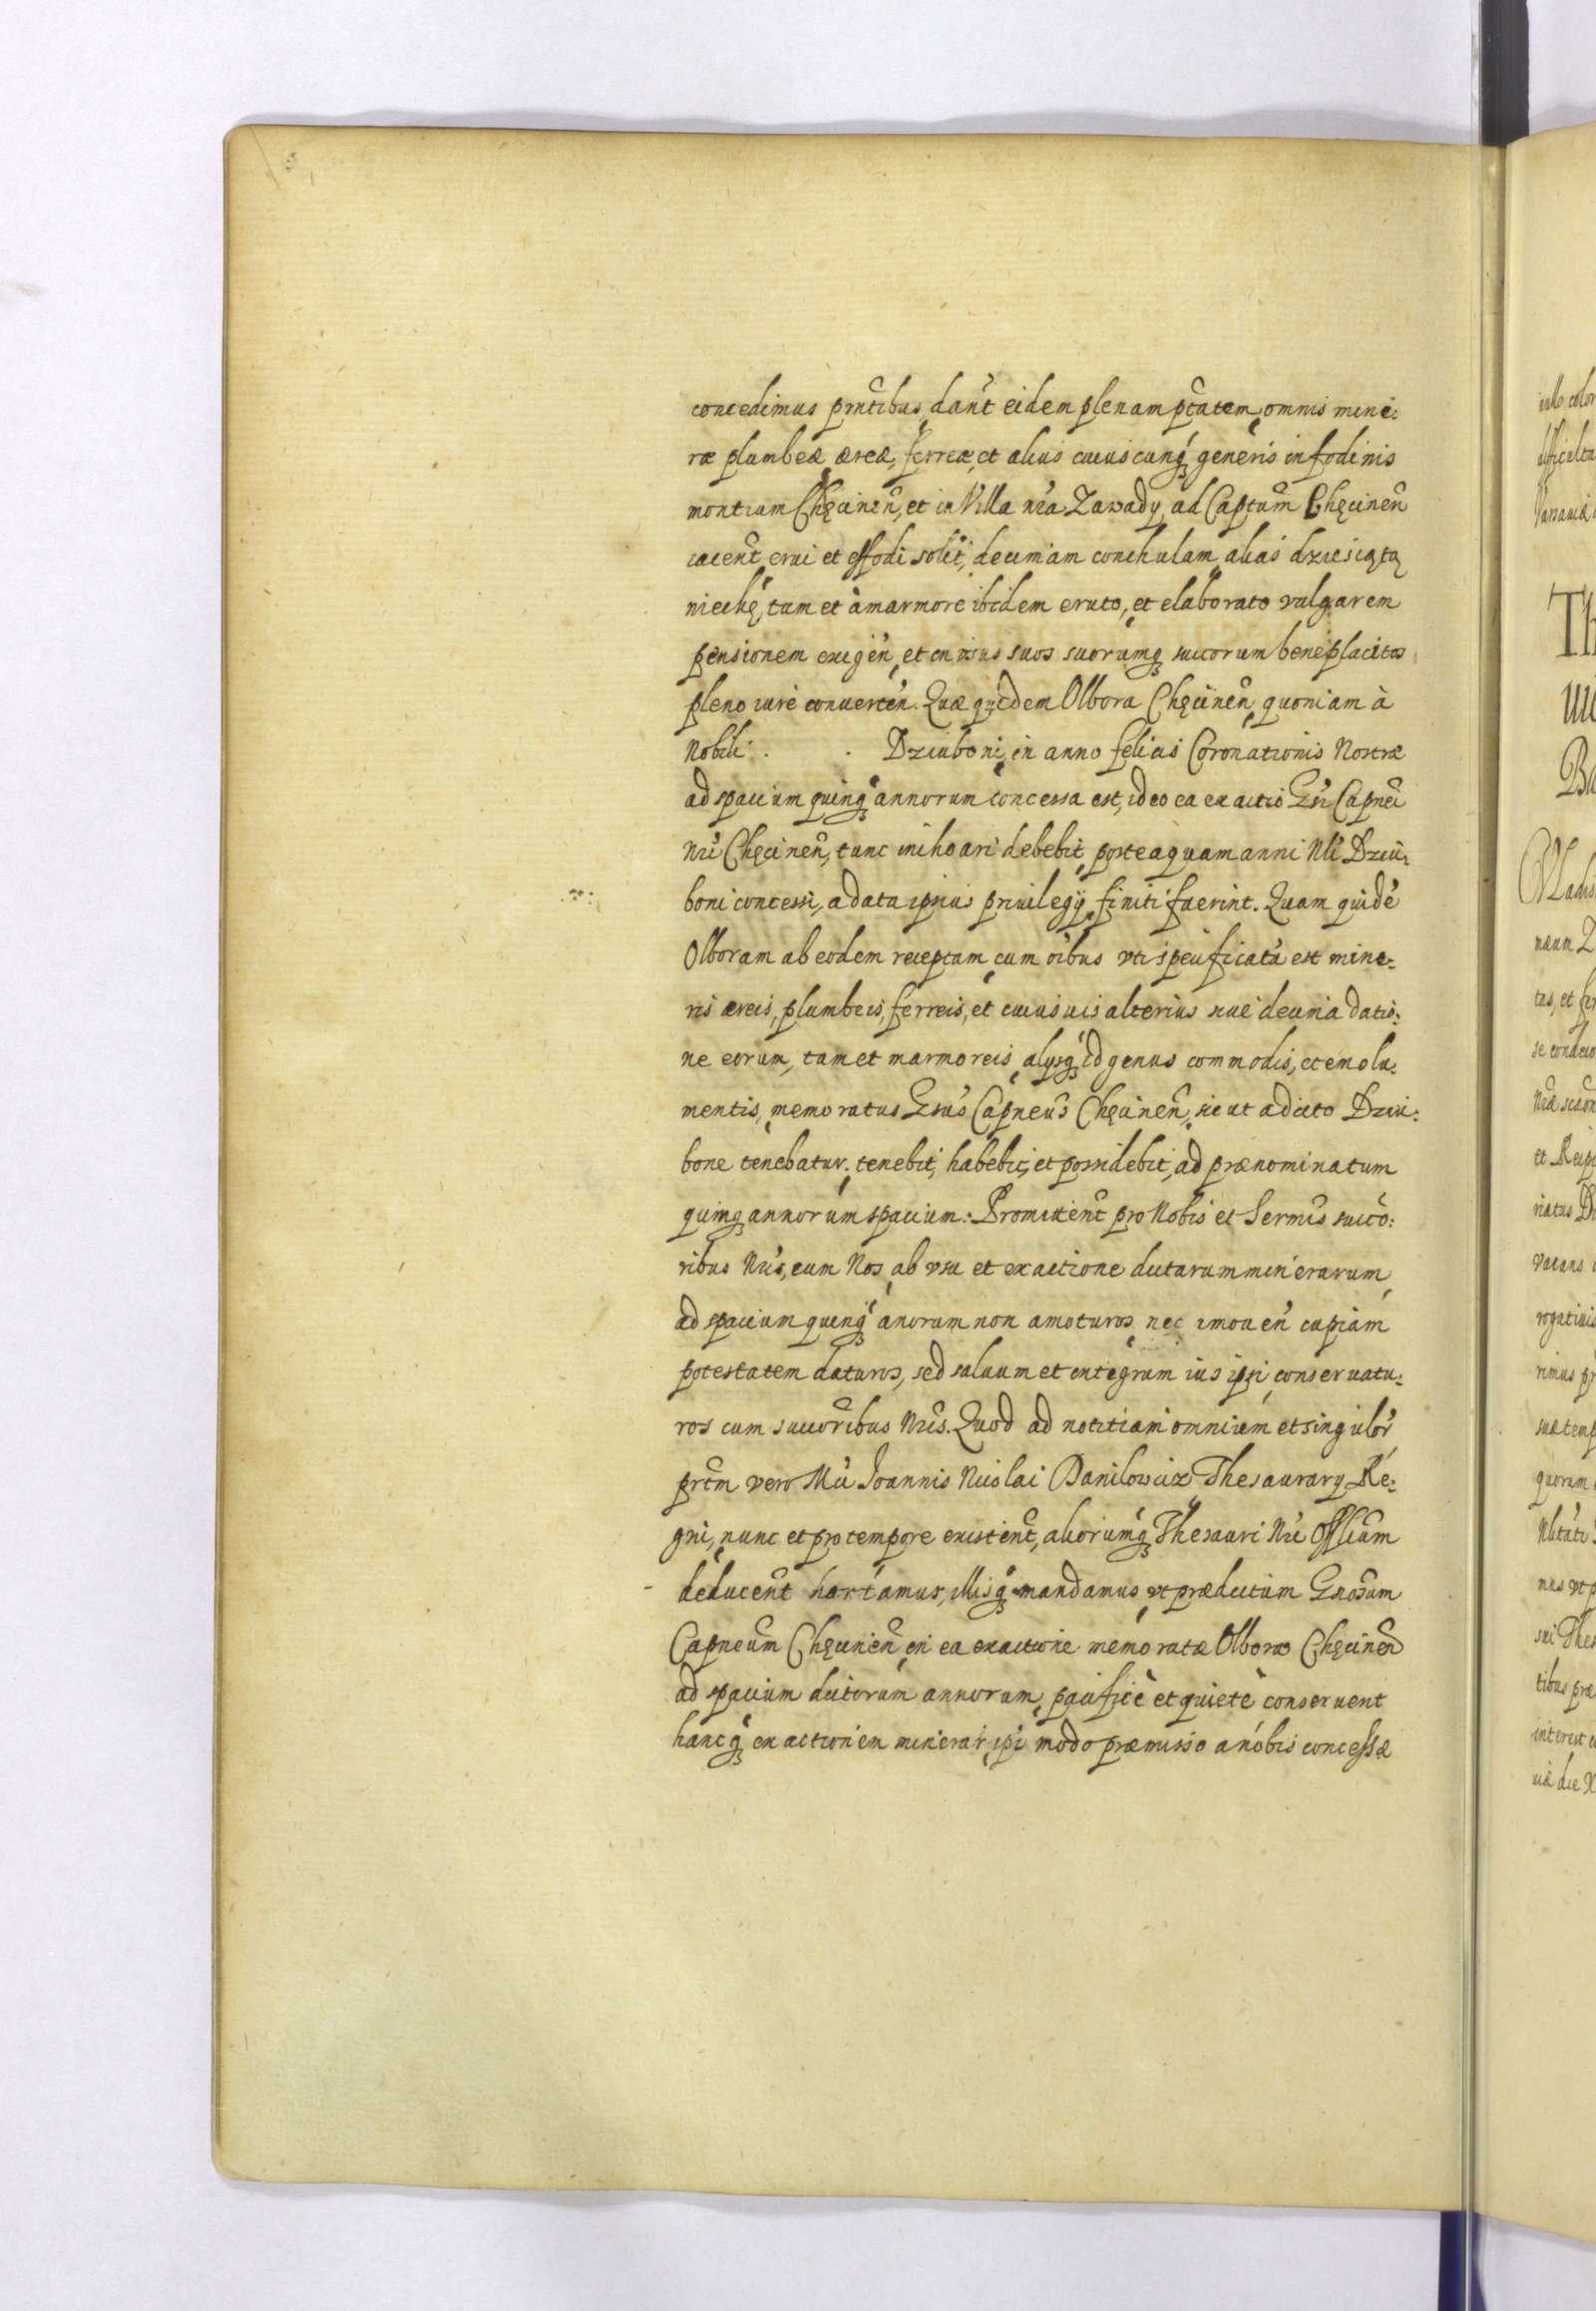 concedimus pñtibus, dañt eidem plenam ptãtem, omnis mine:
ræ plumbeæ, æreæ, ferreæ, et alius cuiuscunq́ꝫ generis in fodinis
montium Chęcineñ, et in Villa nr̃a Zawady ad Captum̃ Chęcineñ
iaceñt, erui et effodi solit̃, decimam conchulam, aliàs dziesiątą
nieckę, tum et à marmore ibidem eruto, et elaborato vulgarem
pensionem exigeñ, et in usus suos suorumq́ꝫ succorum beneplacitos
pleno iure conuerteñ. Quæ quidem Olbora Chęcineñ, quoniam à
Nobili . . Dziuboni, in anno felicis Coronationis Nostræ
ad spacium quinq́ꝫ annorum concessa est, ideo ea exactio Gsi Capnei
Nri Chęcineñ, tunc inchoari debebit, posteaquam anni Nli Dziu:
boni concessi, a data ipsius priuilegÿ, finiti fuerint. Quam quidẽ
Olboram ab eodem receptam, cum oibus vti specificata est mine:
ris æreis, plumbeis, ferreis, et cuiusuis alterius siue decima datio:
ne eorum, tum et marmoreis, alÿsq́ꝫ id genus commodis, et emolu:
mentis, memoratus Gsus Capneus Chęcineñ, sicut a dicto Dziu:
bone tenebatur, tenebit, habebit, et possidebit, ad prænominatum
quinqꝫ annorum spacium: Promitteñt pro Nobis et Sermis succo:
ribus Nris, eum Nos, ab vsu et exactione dictarum minerarum,
ad spacium quinq́ꝫ anorum non amoturos, nec imoueñ cupiam
potestatem daturos, sed saluum et integrum ius ipsi, conseruatu:
ros cum succoribus Nris. Quod ad notitiam omnium et singulor,
prtm vero Mci Joannis Nicolai Danilowicz Thesaurarÿ Re:
gni, nunc et pro tempore existeñt, aliorumq́ꝫ Thesauri Nri Offlium
deduceñt hortamur, illisq́ꝫ mandamus, vt prædictum Gnosum
Capneum Chęcineñ, in ea exactione memoratæ Olboræ Chęcineñ
ad spacium dictorum annorum, pacificè et quietè conseruent
hancq́ꝫ exactionem minerar, ipi modo præmisso a nobis concessæ